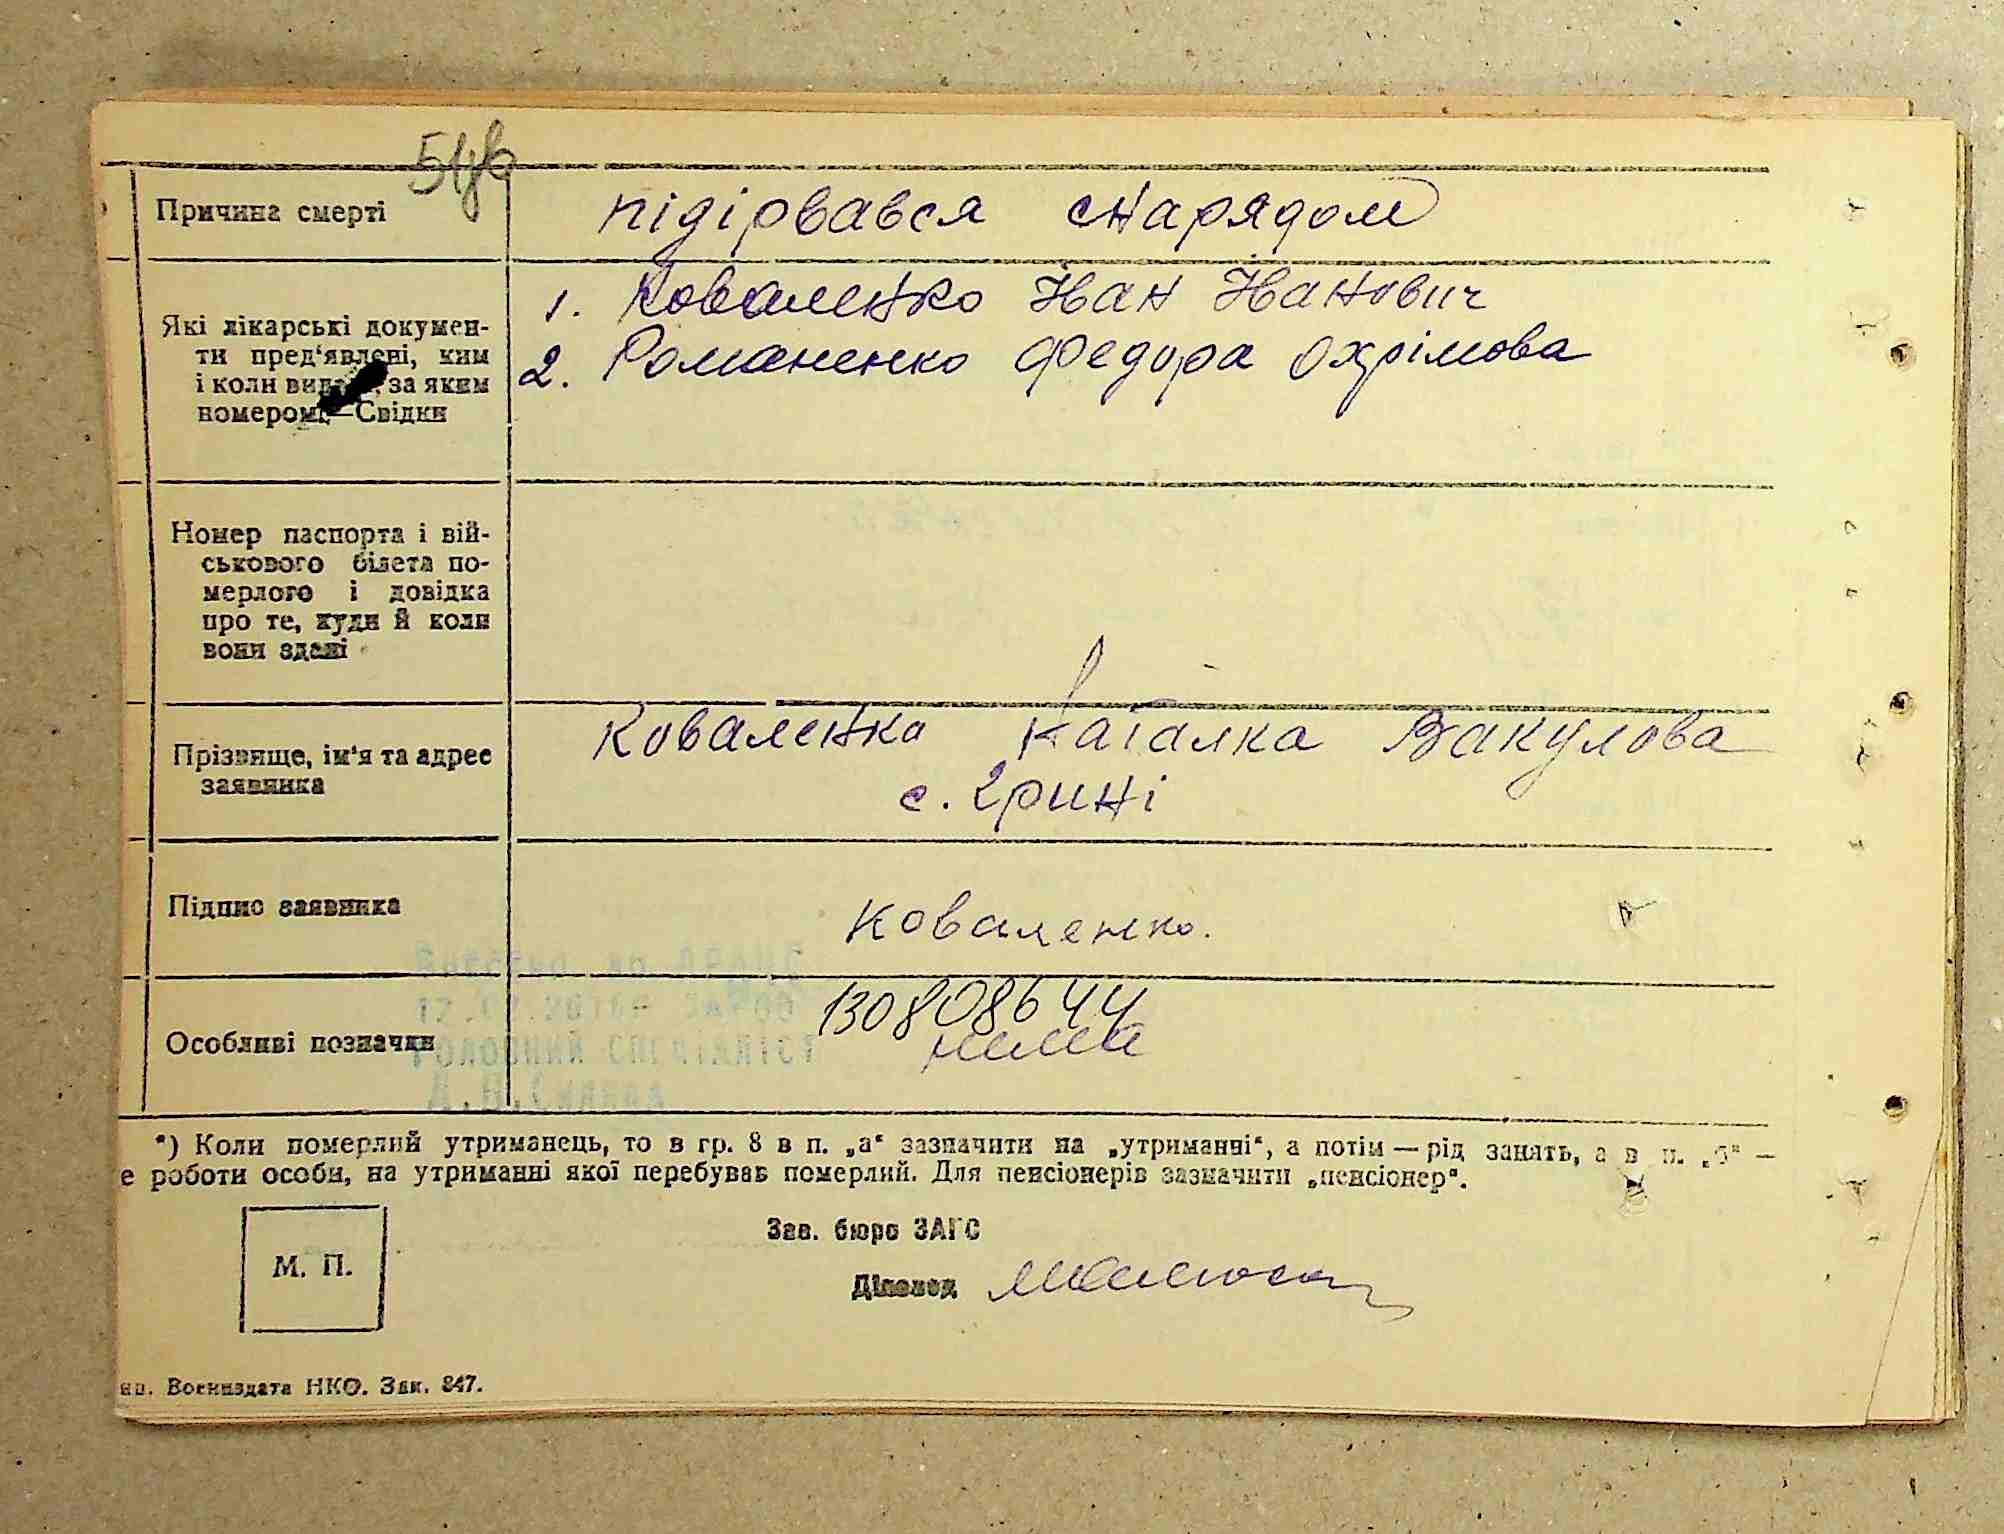 54б
Причина смерті
підірвався снарядом
Які лікарські докумен-
ти пред'явлені, ким
і коли видані, за яким
номером.—Свідки
1. Коваленко Іван Іванович
2. Романенко Федора Охрімова
Номер паспорта і вій-
ськового білета по-
мерлого і довідка
про те, куди й коли
вони здані
Прізвище, ім'я та адрес
заявника
Коваленко Наталка Вакулова
с. Грині
Підпис заявника
Коваленко.
Внесено до ДРАЦС
Особливі позначки
130808644
нема
ГОЛОВНИЙ СПЕЦІАЛІСТ
*) Коли померлий утриманець, то в гр. 8 в п. „а“ зазначити на „утриманні“, а потім — рід занять, а в п. „б“ —
е роботи особи, на утриманні якої перебував померлий. Для пенсіонерів зазначити „пенсіонер“.
М. П.
Зав. бюро ЗАГС
Діловод
ип. Воениздата НКО. Зак. 847.